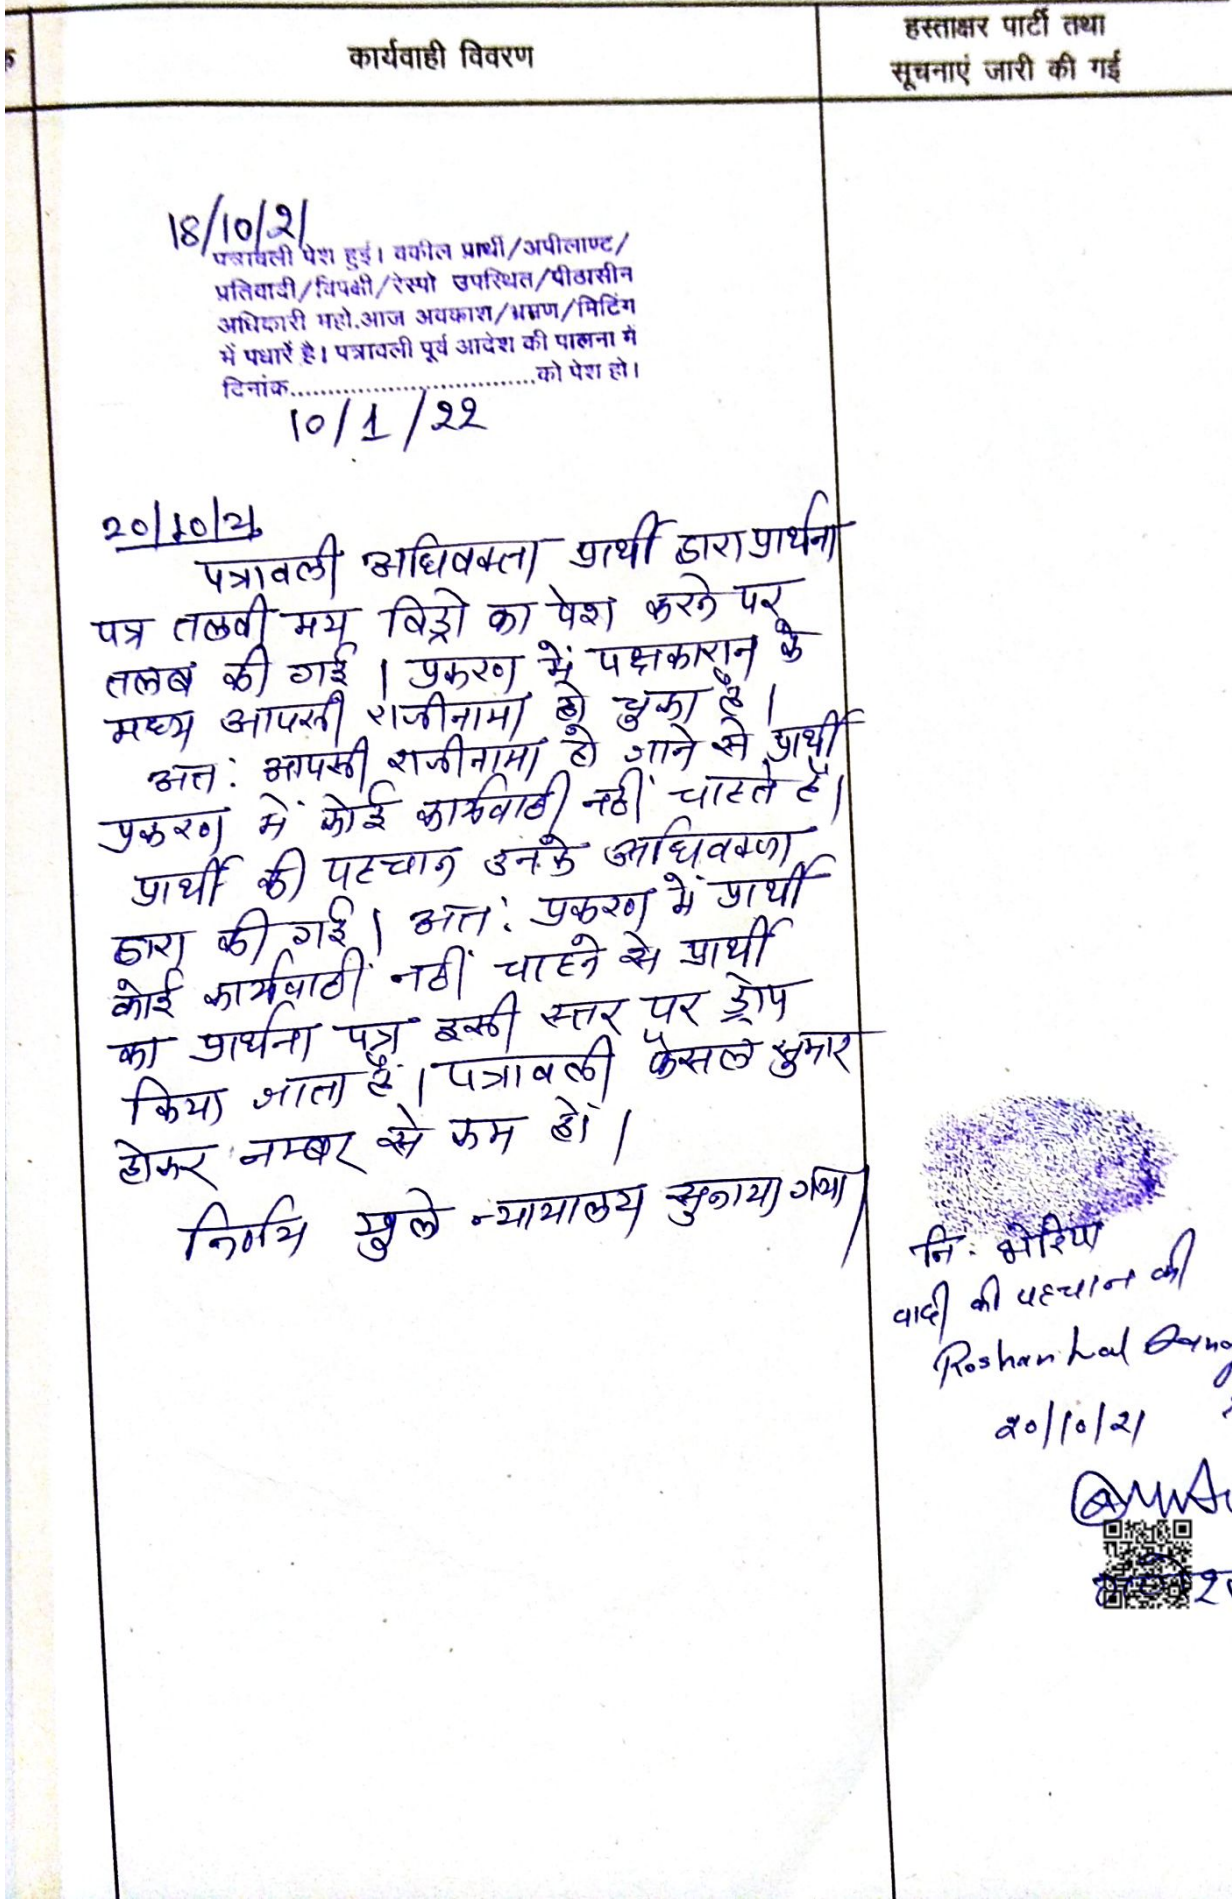 कार्यवाही विवरण
हस्ताक्षर पार्टी तथा
सूचनाएं जारी की गई
18/10/21
पत्रावली पेश हुई। वकील प्रार्थी/अपीलाण्ट/
प्रतिवादी/विपक्षी/रेस्पो उपस्थित/पीठासीन
अधिकारी महो.आज अवकाश/भ्रमण/मिटिंग
में पधारें है। पत्रावली पूर्व आदेश की पालना में
दिनांक................................को पेश हो।
10/1/22
20/10/21
पत्रावली अधिवक्ता प्रार्थी द्वारा प्रार्थना
पत्र तलवी मय विड्रो का पेश करने पर
तलब की गई। प्रकरण में पक्षकारान के
मध्य आपसी राजीनामा हो चुका है।
अतः आपसी राजीनामा हो जाने से प्रार्थी
प्रकरण में कोई कार्यवाही नहीं चाहते हैं।
प्रार्थी की पहचान उनके अधिवक्ता
द्वारा की गई। अतः प्रकरण में प्रार्थी
कोई कार्यवाही नहीं चाहने से प्रार्थी
का प्रार्थना पत्र इसी स्तर पर ड्रोप
किया जाता है। पत्रावली फैसल शुमार
होकर नम्बर से कम हो।
निर्णय खुले न्यायालय सुनाया गया।
नि: भेरिया
वादी की पहचान की
Roshan Lal
20/10/21